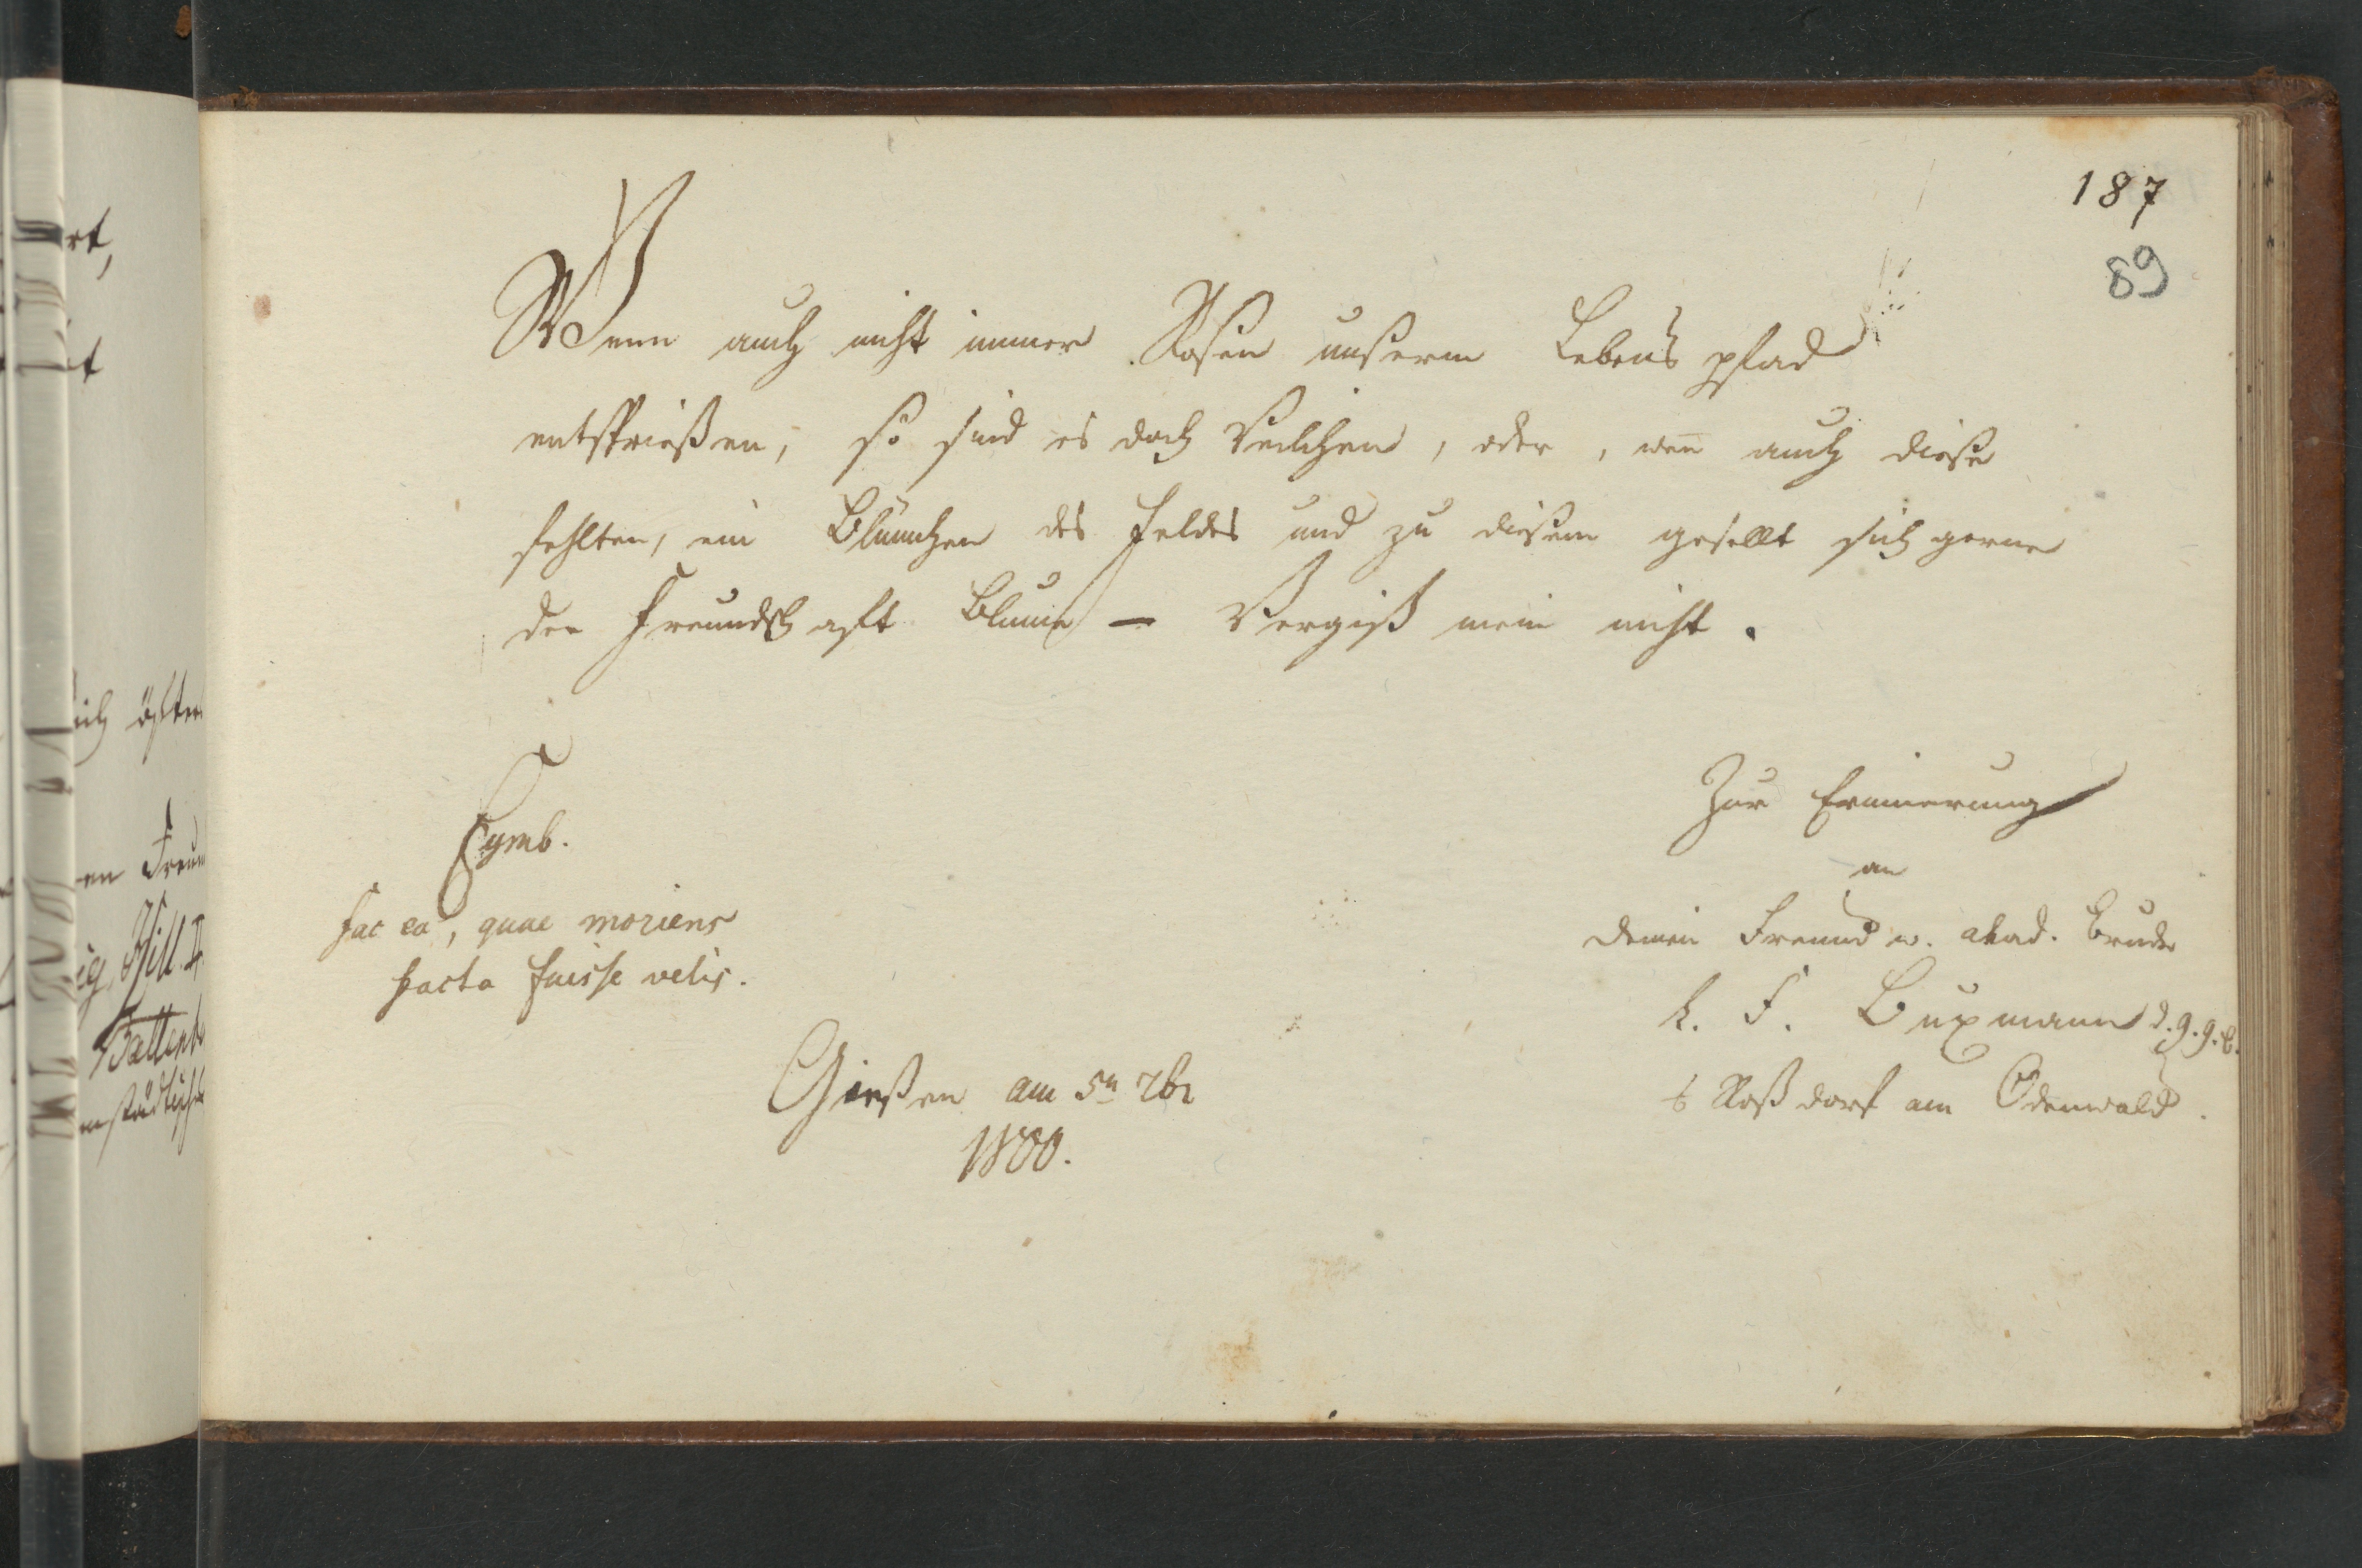 187
89
Wenn auch nicht immer Rosen unserm Lebens pfad
entsprießen, so sind es doch Veilchen, oder, wen̄ auch diese
fehlten, ein Blümchen des Feldes und zu diesem gesellt sich gerne
der Freundschaft Blume – Vergiß mein nicht.
Symb.
fac ea, quae moriens
facta fuisse velis.
Gießen am 5n 7br
1800.
Zur Erinnerung
an
Deinen Freund u. akad. Bruder
K. F. Buxmann d. g. g. b.
Roßdorf am Odenwald.
rt,
ich öfter
en Freun
ig, Hill. II.
Battenb
mstädtisch